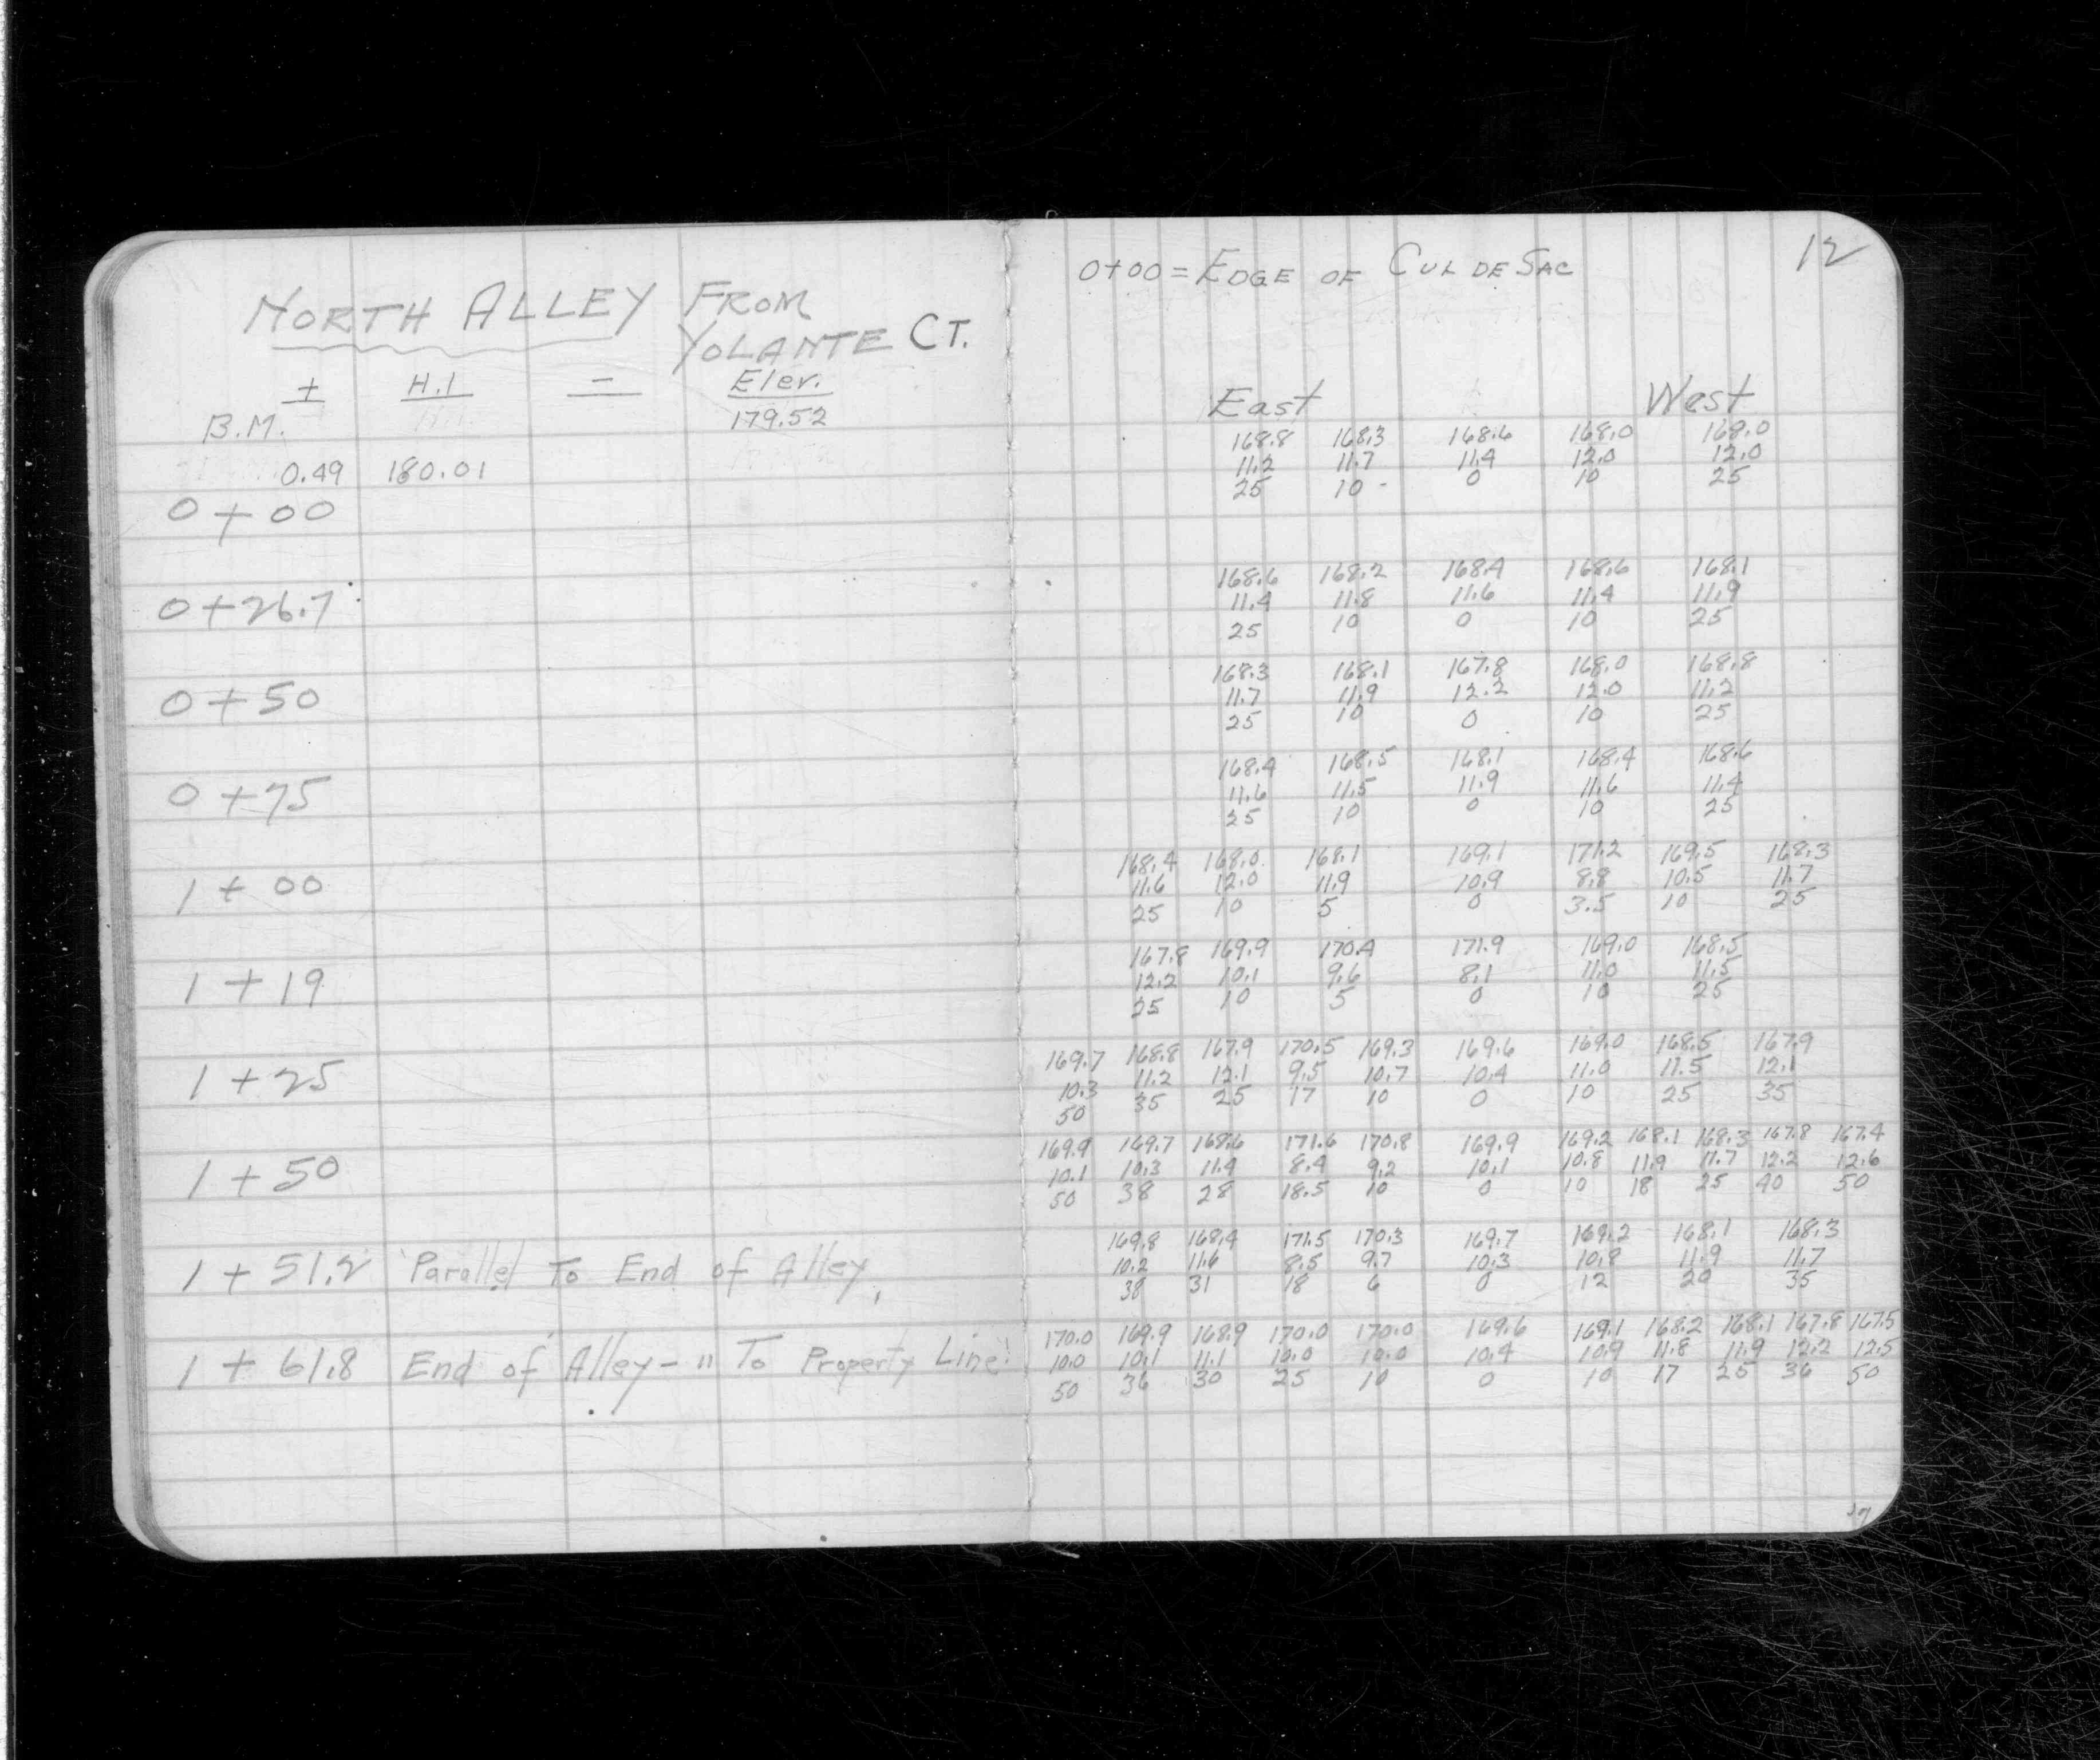 NORTH ALLEY FROM
YOLANTE CT.
+ H.I - Elev.
B.M. 179.52
0.49 180.01
0+00
0+26.7
0+50
0+75
1+00
1+19
1+25
1+50
1+51.2 Parallel To End of Alley,
1+61.8 End of Alley- " To Property Line
12
0+00 = EDGE OF CUL DE SAC
East West
168.8 168.3 168.6 168.0 168.0
11.2 11.7 11.4 12.0 12.0
25 10 - 0 10 25
168.6 168.2 168.4 168.6 168.1
11.4 11.8 11.6 11.4 11.9
25 10 0 10 25
168.3 168.1 167.8 168.0 168.8
11.7 11.9 12.2 12.0 11.2
25 10 0 10 25
168.4 168.5 168.1 168.4 168.6
11.6 11.5 11.9 11.6 11.4
25 10 0 10 25
168.4 168.0 168.1 169.1 171.2 169.5 168.3
11.6 12.0 11.9 10.9 8.8 10.5 11.7
25 10 5 0 3.5 10 25
167.8 169.9 170.4 171.9 169.0 168.5
12.2 10.1 9.6 8.1 11.0 11.5
25 10 5 0 10 25
169.7 168.8 167.9 170.5 169.3 169.6 169.0 168.5 167.9
10.3 11.2 12.1 9.5 10.7 10.4 11.0 11.5 12.1
50 35 25 17 10 0 10 25 35
169.9 169.7 168.6 171.6 170.8 169.9 169.2 168.1 168.3 167.8 167.4
10.1 10.3 11.4 8.4 9.2 10.1 10.8 11.9 11.7 12.2 12.6
50 38 28 18.5 10 0 10 18 25 40 50
169.8 168.4 171.5 170.3 169.7 169.2 168.1 168.3
10.2 11.6 8.5 9.7 10.3 10.8 11.9 11.7
38 31 18 6 0 12 20 35
170.0 169.9 168.9 170.0 170.0 169.6 169.1 168.2 168.1 167.8 167.5
10.0 10.1 11.1 10.0 10.0 10.4 10.9 11.8 11.9 12.2 12.5
50 36 30 25 10 0 10 17 25 36 50